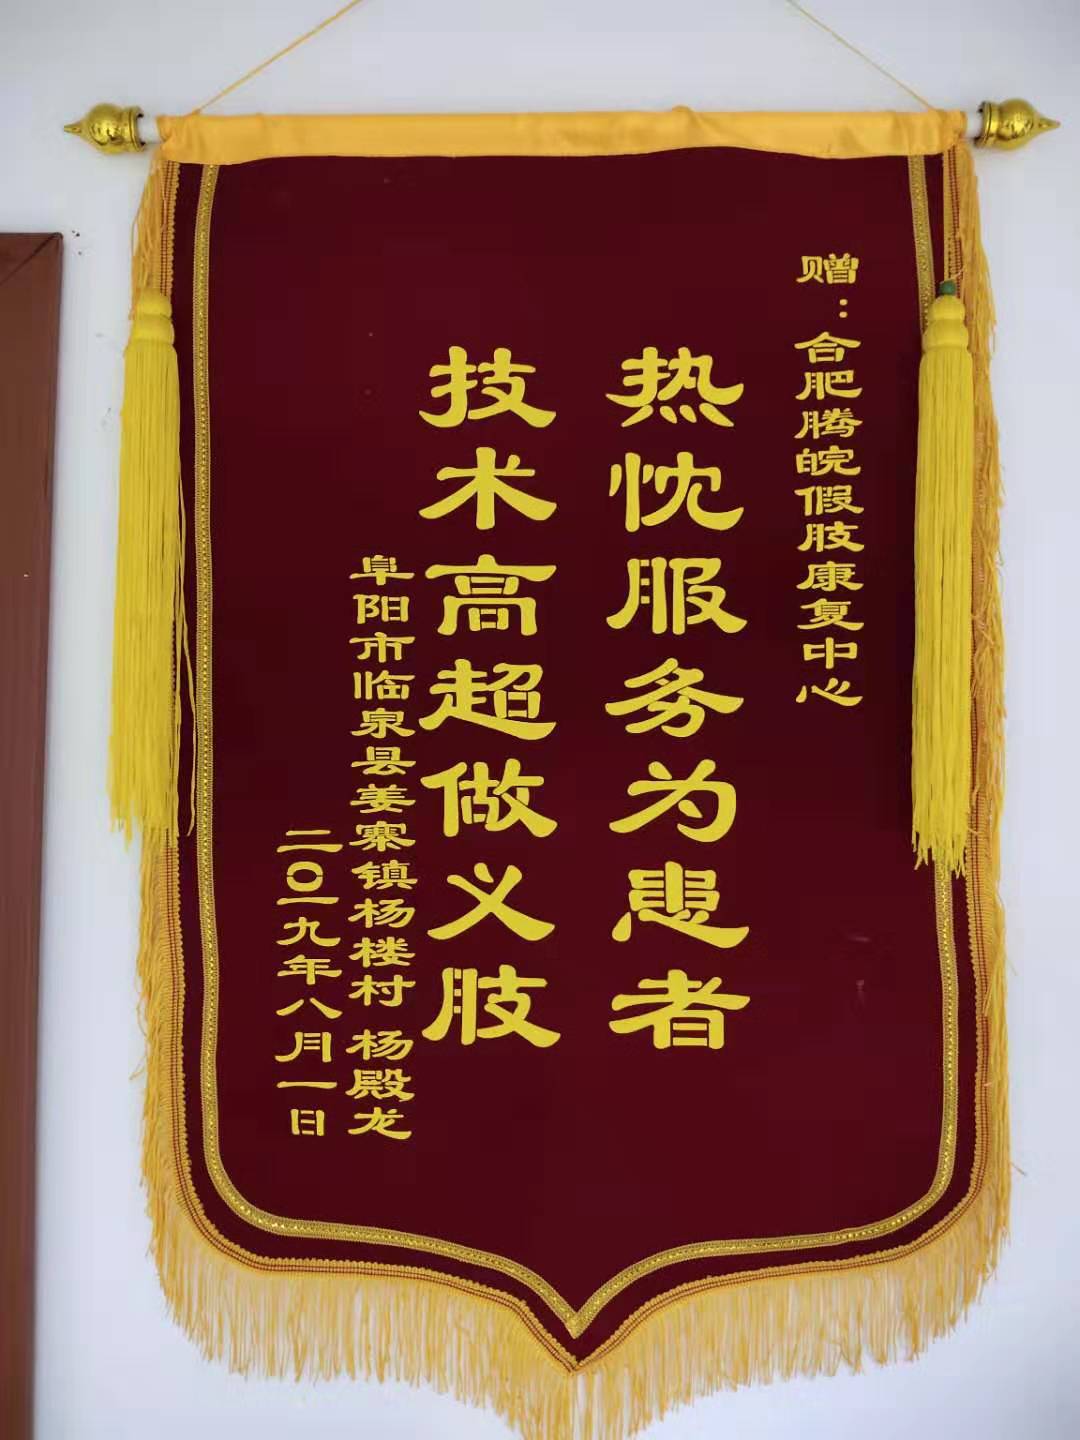 赠：合肥腾皖假肢康复中心
热忱服务为患者
技术高超做义肢
阜阳市临泉县姜寨镇杨楼村 杨殿龙
二〇一九年八月一日